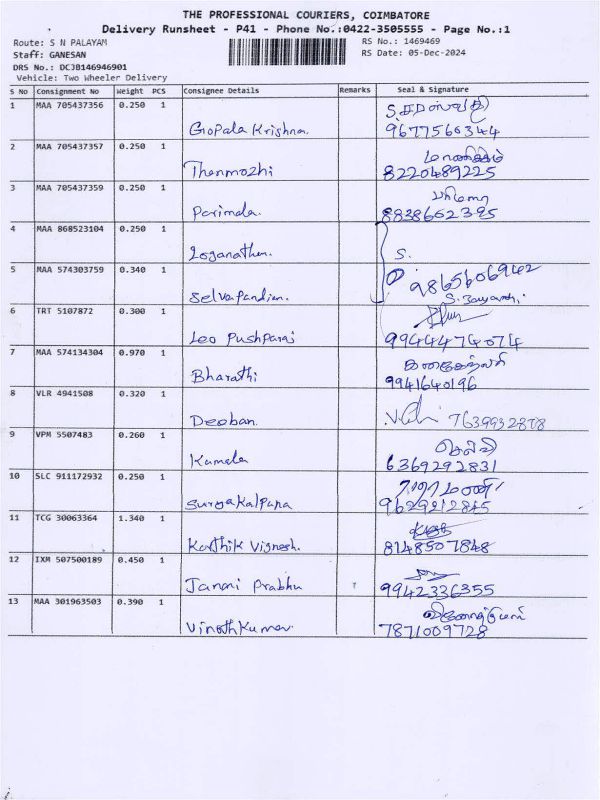 THE PROFESSIONAL COURIERS, COIMBATORE
Delivery Runsheet - P41 - Phone No.:0422-3505555 - Page No.:1
Route: S N PALAYAM RS No.: 1469469
Staff: GANESAN RS Date: 05-Dec-2024
DRS No.: DCJB146946901
Vehicle: Two Wheeler Delivery
S No Consignment No Weight PCS Consignee Details Remarks Seal & Signature
1 MAA 705437356 0.250 1 S. சரஸ்வதி
Gopala Krishna. 9677566344
2 MAA 705437357 0.250 1 மாணிக்கம்
Thenmozhi 8220489225
3 MAA 705437359 0.250 1
Parimala. 8838662395
4 MAA 868523104 0.250 1
Loganathan. S.
5 MAA 574303759 0.340 1 9865606942
Selvapandian. S.
6 TRT 5107872 0.300 1
Leo Pushparaj 9944474074
7 MAA 574134304 0.970 1
Bharathi 9941640196
8 VLR 4941508 0.320 1
Deoban. 7639932878
9 VPM 5507483 0.260 1 செல்வி
Kamala 6369292831
10 SLC 911172932 0.250 1
Suryakalpana 9629212845
11 TCG 30063364 1.340 1
Karthik Vignesh. 8148507848
12 IXM 507500189 0.450 1
Janani Prabhu 9942336355
13 MAA 301963503 0.390 1
Vinoth Kumar. 7871009728